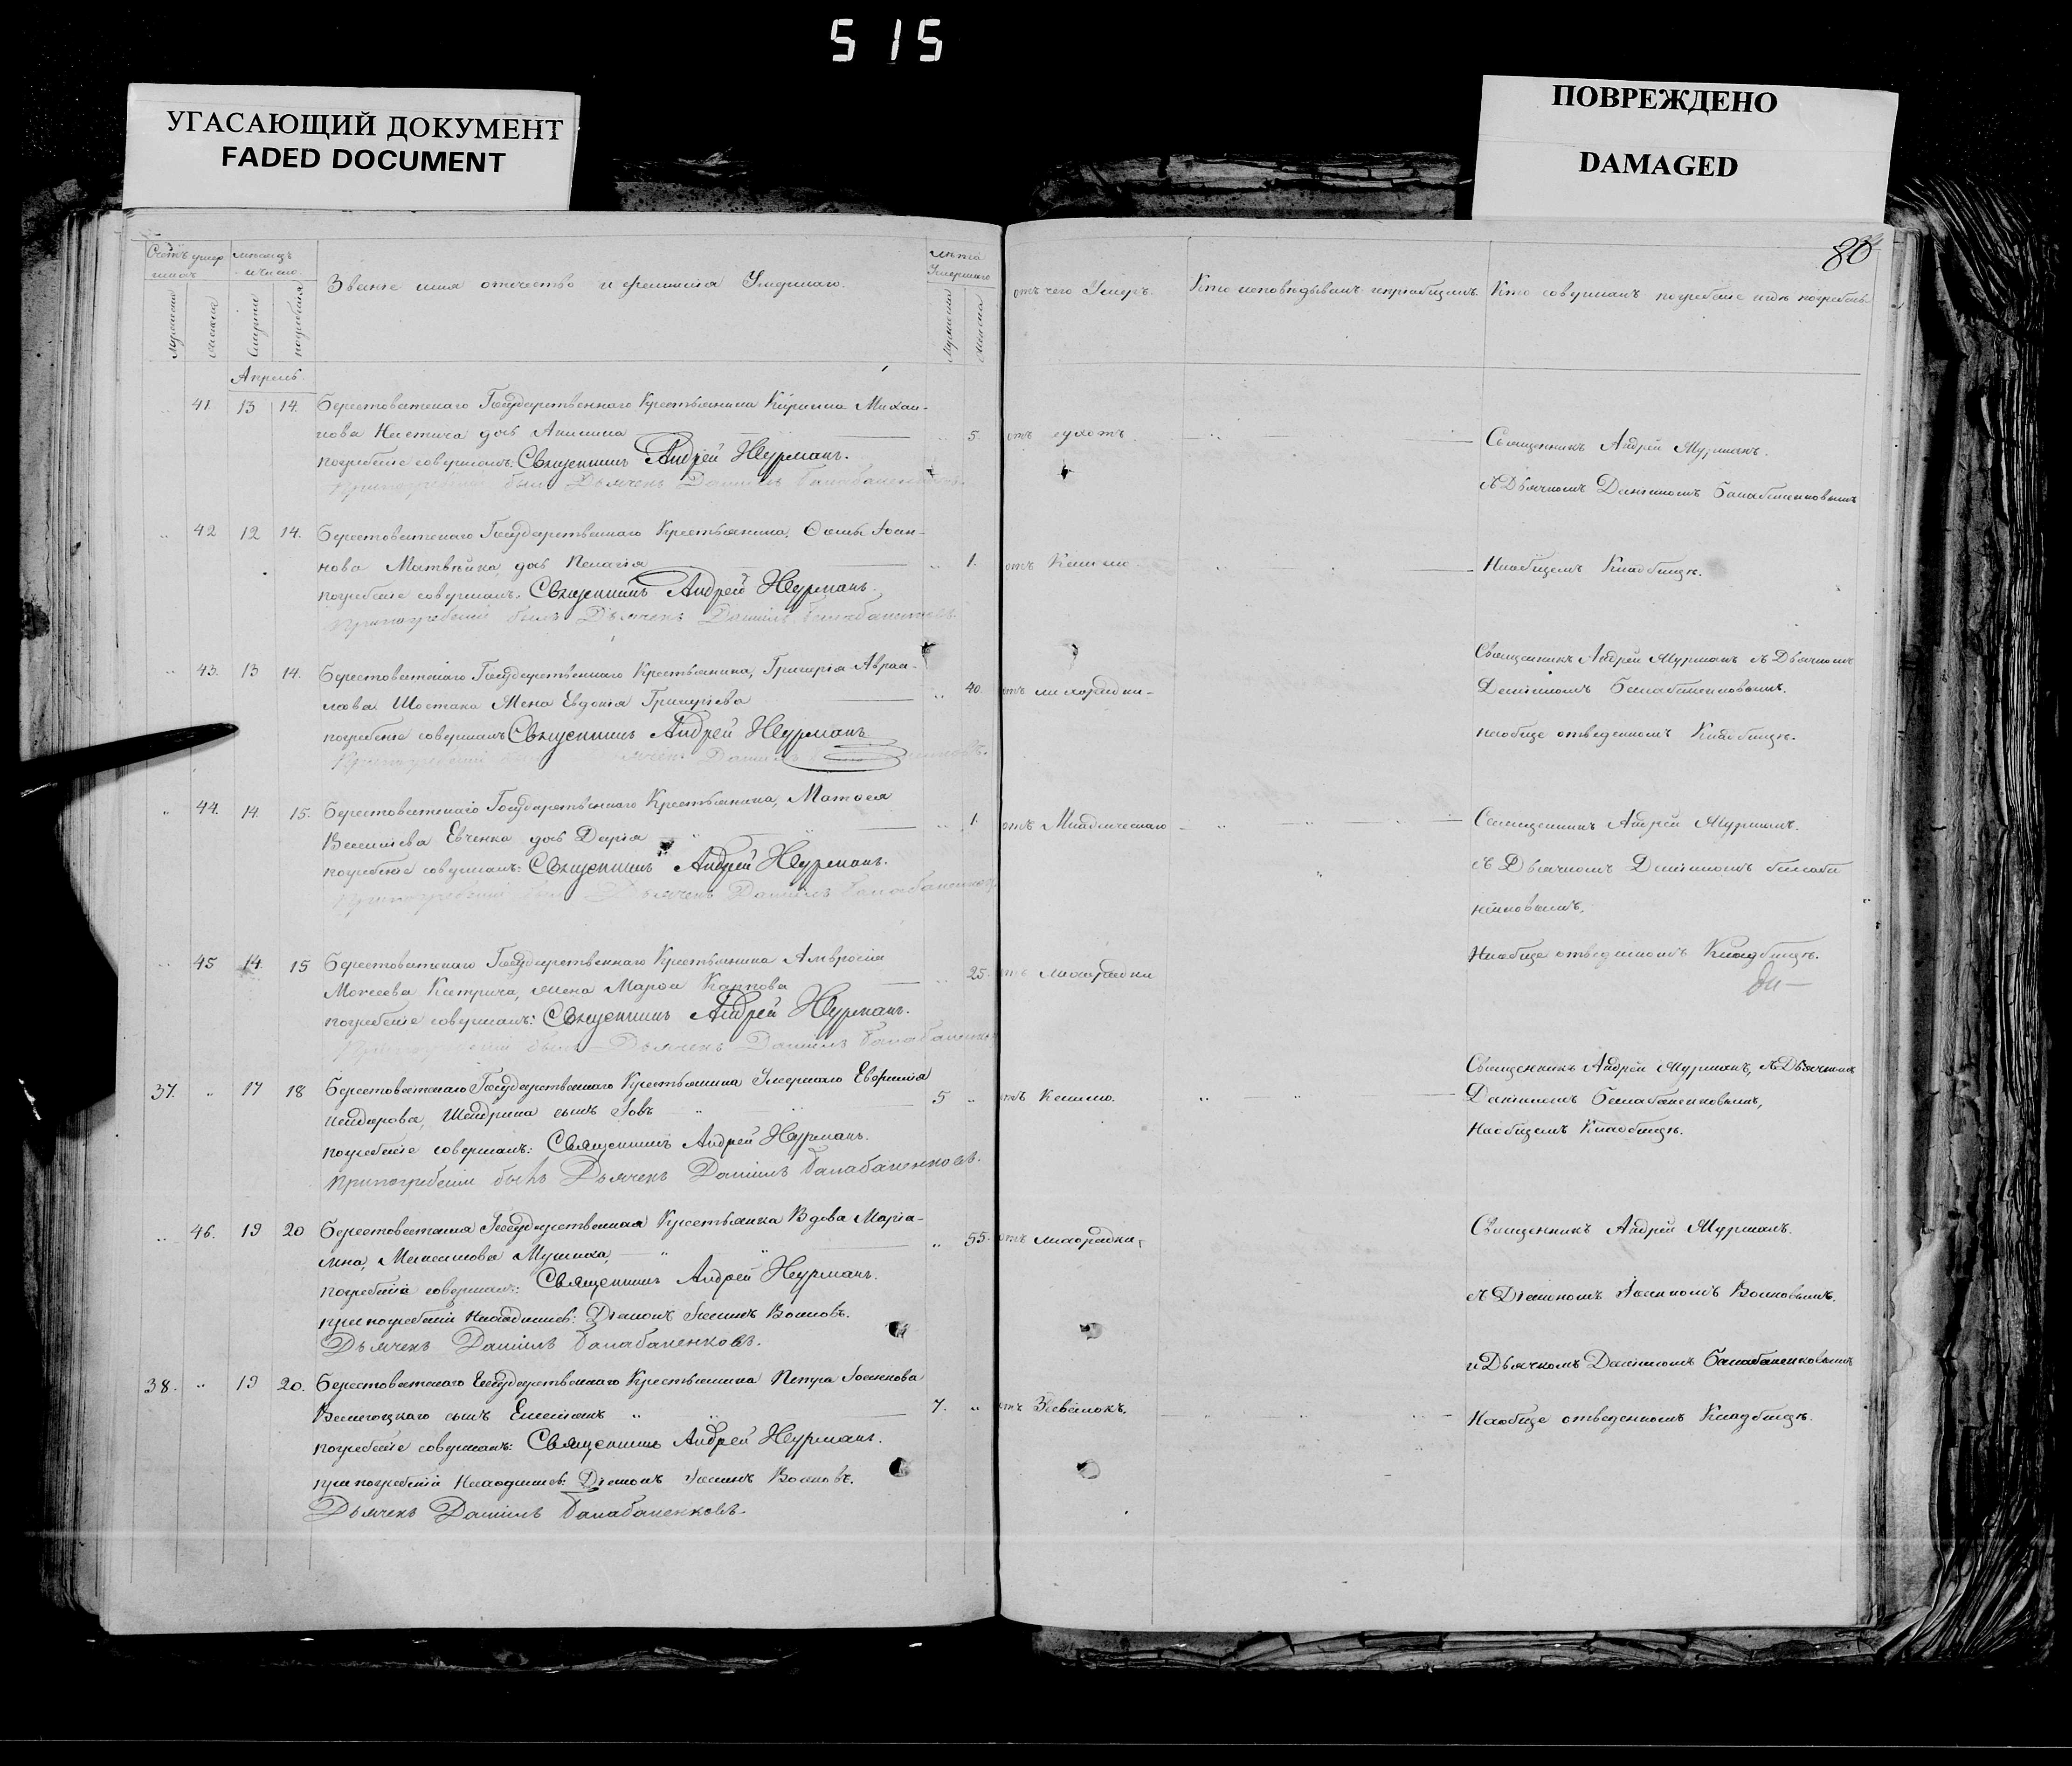 515
УГАСАЮЩИЙ ДОКУМЕНТ
FADED DOCUMENT
ПОВРЕЖДЕНО
DAMAGED
80
Званіе имя отчество и фамилія Умершаго.
лѣта
Умершаго
отъ чего Умеръ.
Кто исповѣдывалъ и пріобщалъ.
Кто совершалъ погребеніе и гдѣ погребены
Апрель.
41. 13 14. Берестоватскаго Государственнаго Крестьянина Кирилла Михаи-
лова дочь Акилина 5. отъ сухотъ.
погребеніе совершалъ: Священникъ Андрей Журманъ.
При погребеніи былъ Дьячекъ Даніилъ Балабаненковъ.
Священникъ Андрей Журманъ.
съ Дьячкомъ Даніиломъ Балабаненковымъ
42 12 14. Берестоватскаго Государственнаго Крестьянина, Ѳомы Іоан-
нова Матвѣйка, дочь Пелагія 1. отъ Кашлю.
погребеніе совершалъ. Священникъ Андрей Журманъ.
При погребеніи былъ Дьячекъ Даніилъ Балабаненковъ.
На общемъ Кладбищѣ.
43. 13 14. Берестоватскаго Государственнаго Крестьянина, Григорія Авраа-
мова Шостака Жена Евдокія Григоріева 40. отъ лихорадки
погребеніе совершалъ Священникъ Андрей Журманъ
При погребеніи былъ Дьячекъ Даніилъ
Священникъ Андрей Журманъ съ Дьячкомъ
Даніиломъ Балабаненковымъ.
на обще отведенномъ Кладбищѣ.
44. 14. 15. Берестоватскаго Государственнаго Крестьянина, Матѳея
Василіева Евченка дочь Дарія 1. отъ Младенческаго
погребеніе совершалъ: Священникъ Андрей Журманъ.
При погребеніи былъ Дьячекъ Даніилъ Балабаненковъ
Священникъ Андрей Журманъ.
съ Дьячкомъ Даніиломъ Балаба
ненковымъ.
45 14. 15 Берестоватскаго Государственнаго Крестьянина Амвросія
Моисеева жена Марѳа Карпова 25. отъ лихорадки
погребеніе совершалъ: Священникъ Андрей Журманъ.
При погребеніи былъ Дьячекъ Даніилъ Балабаненковъ
На обще отведенномъ Кладбищѣ.
37. 17 18 Берестоватскаго Государственнаго Крестьянина Умершаго Евфимія
сынъ Іовъ 5 отъ Кашлю.
погребеніе совершалъ: Священникъ Андрей Журманъ.
При погребеніи былъ Дьячекъ Даніилъ Балабаненковъ.
Священникъ Андрей Журманъ, съ Дьячкомъ
Даніиломъ Балабаненковымъ,
На общемъ Кладбищѣ.
46. 19 20 Берестоватская Государственная Крестьянка Вдова Марія-
мна, Максимова 55. отъ лихорадки,
погребеніе совершалъ: Священникъ Андрей Журманъ.
при погребеніи Находились: Діаконъ Іоаннъ Волковъ.
Дьячекъ Даніилъ Балабаненковъ.
Священникъ Андрей Журманъ.
съ Діакономъ Іоанномъ Волковымъ.
и Дьячкомъ Даніиломъ Балабаненковымъ
38. 19 20. Берестоватскаго Государственнаго Крестьянина Петра Іоаннова
сынъ Емеліянъ 7. отъ
погребеніе совершалъ: Священникъ Андрей Журманъ.
при погребеніи Находились: Діаконъ Іоаннъ Волковъ.
Дьячекъ Даніилъ Балабаненковъ.
На обще отведенномъ Кладбищѣ.